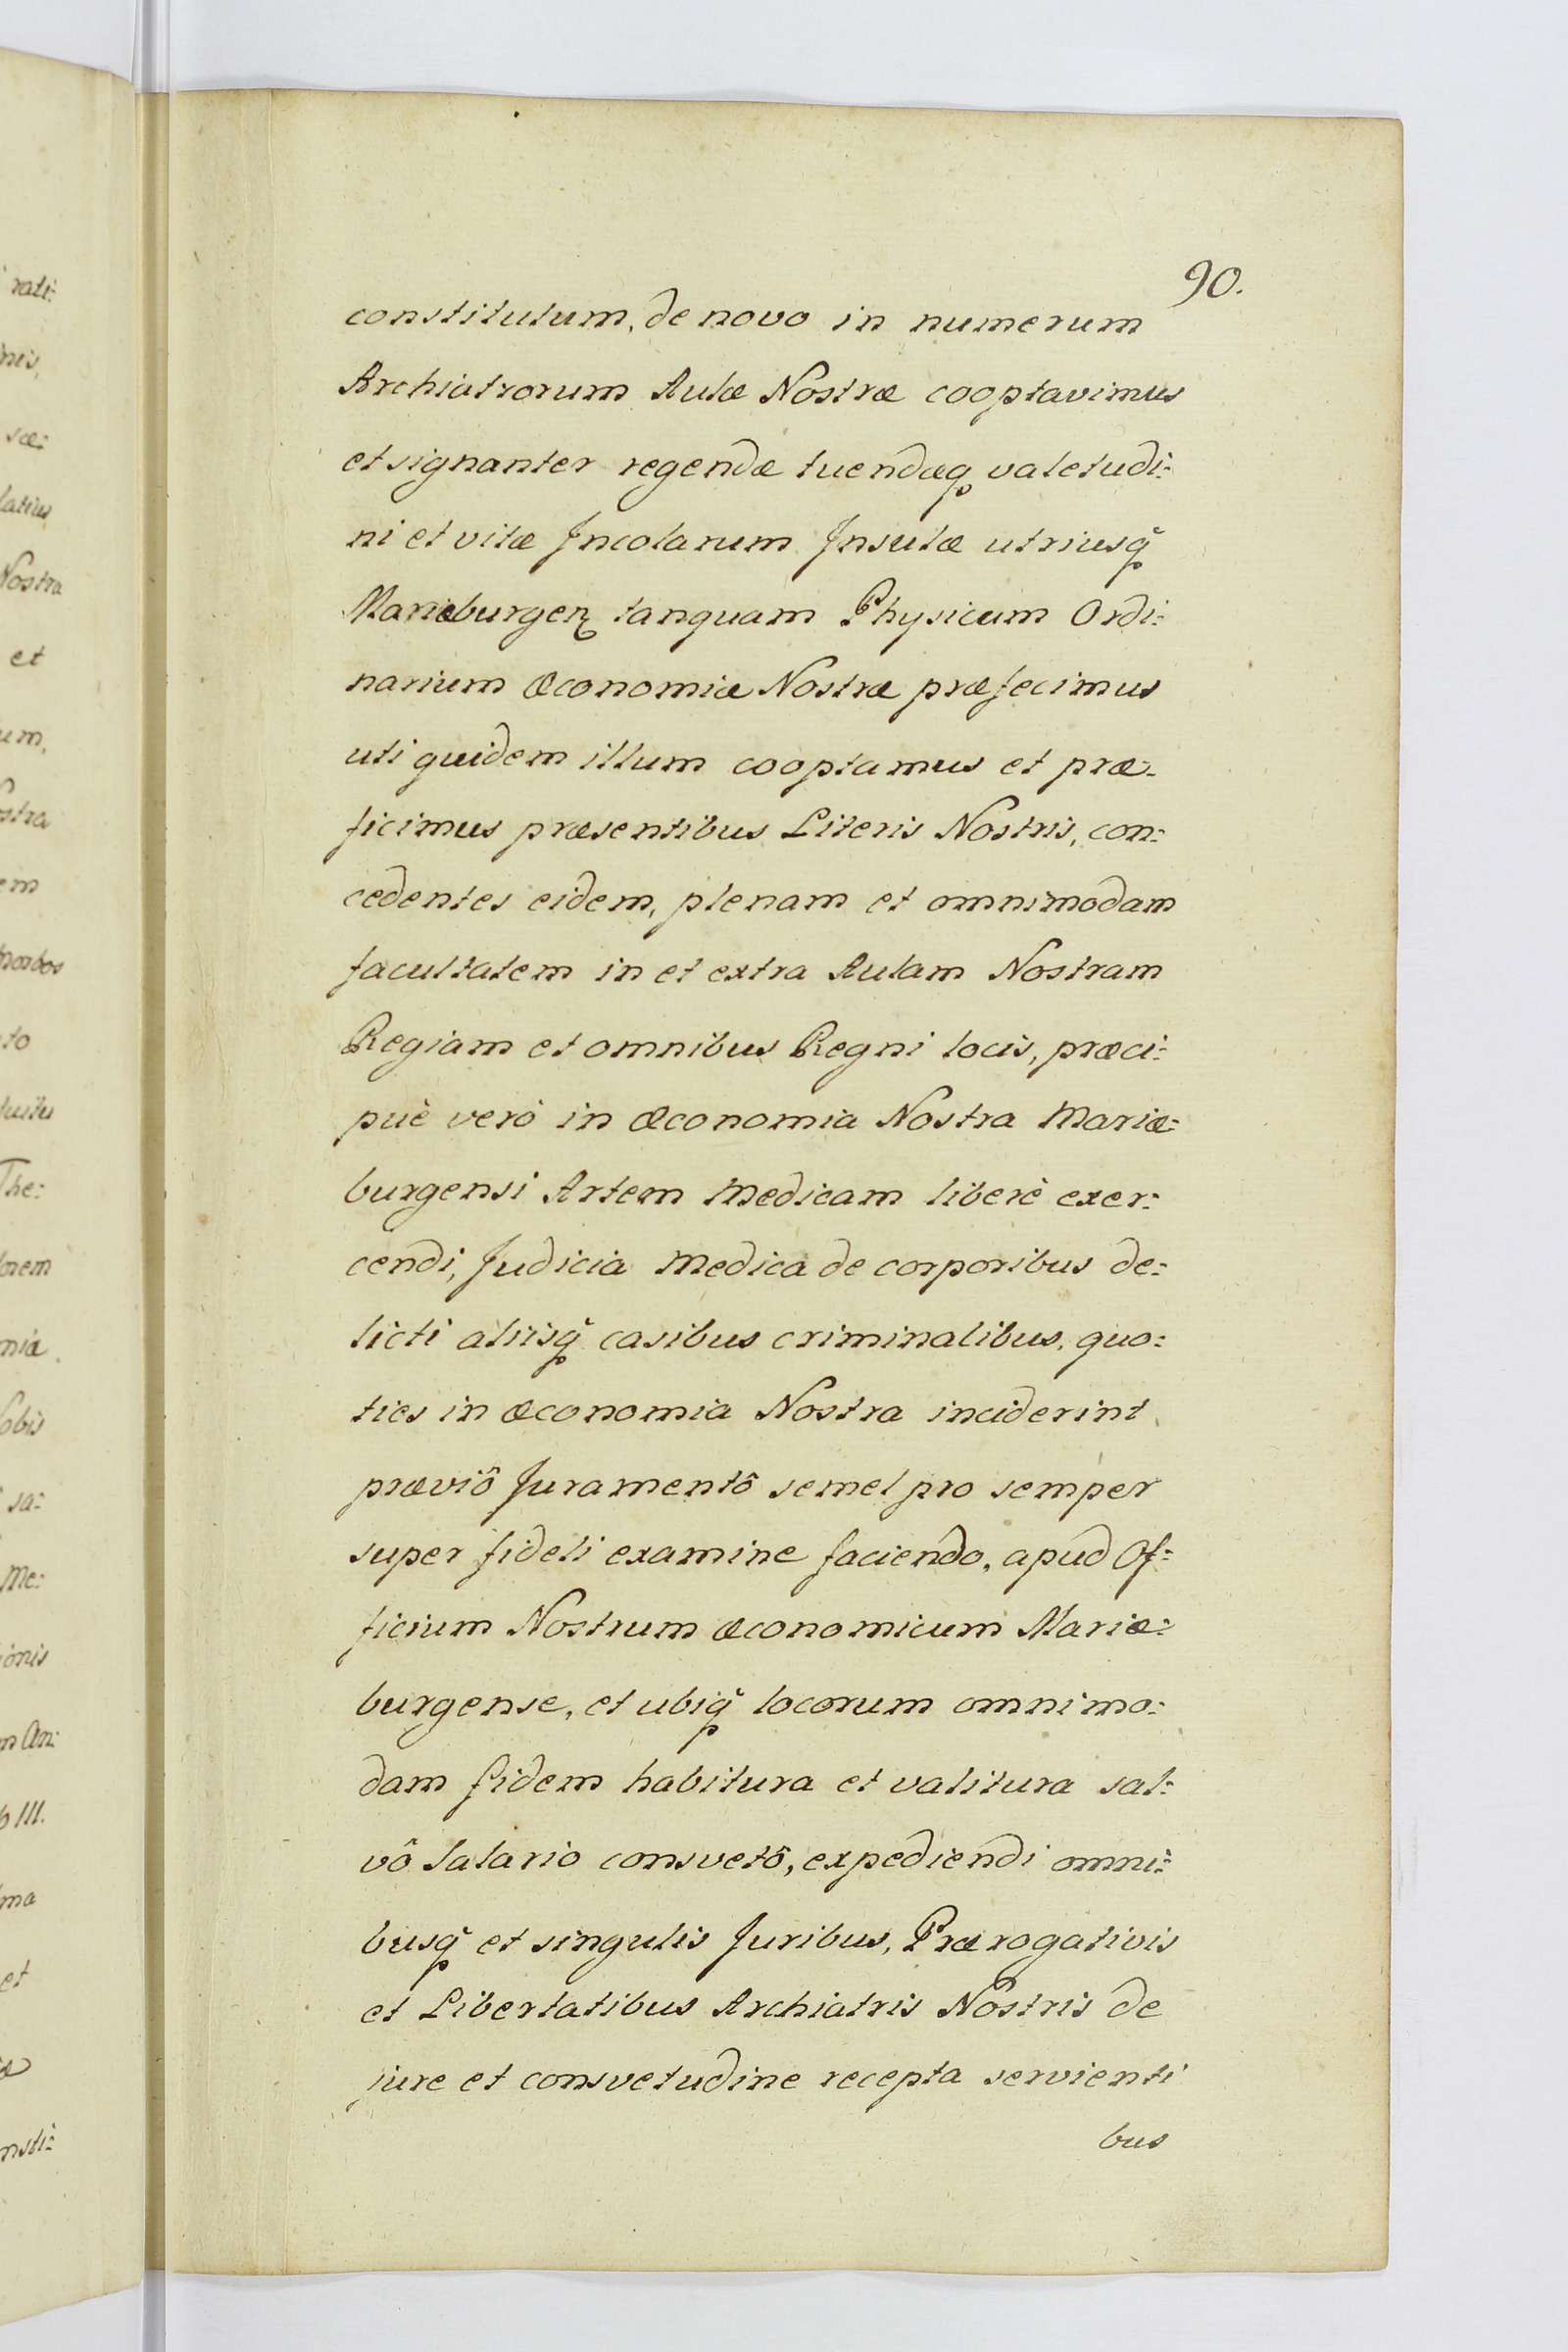 90.
constitutum, de novo in numerum
Archiatrorum Aulæ Nostræ cooptavimus
et signanter regendæ tuendæq valetudi:
ni et vitæ Incolarum Insulæ utriusq̃
Mariæburgen tanquam Physicum Ordi:
narium Œconomiæ Nostræ præfecimus
uti quidem illum cooptamus et præ:
ficimus præsentibus Literis Nostris, con:
cedentes eidem, plenam et omnimodam
facultatem in et extra Aulam Nostram
Regiam et omnibus Regni locis, præci:
puè verò in Œconomia Nostra Mariæ:
burgensi Artem Medicam liberè exer:
cendi, Judicia Medica de corporibus de:
licti aliisq̃ casibus criminalibus, quo:
ties in Œconomia Nostra inciderint
præviô Juramentô semel pro semper
super fideli examine faciendo, apud Of:
ficium Nostrum Œconomicum Mariæ:
burgense, et ubiq̃ locorum omnimo:
dam fidem habitura et valitura sal:
vô Salario consvetô, expediendi omni:
busq̃ et singulis Juribus, Prærogativis
et Libertatibus Archiatris Nostris de
jure et consvetudine recepta servienti
bus
rati:
sæ:
latius
Nostra
et
um,
ostra
em
morbos
to
The:
nia
obis
sa:
Me:
ionis
m An:
III.
ma
et
nsti: